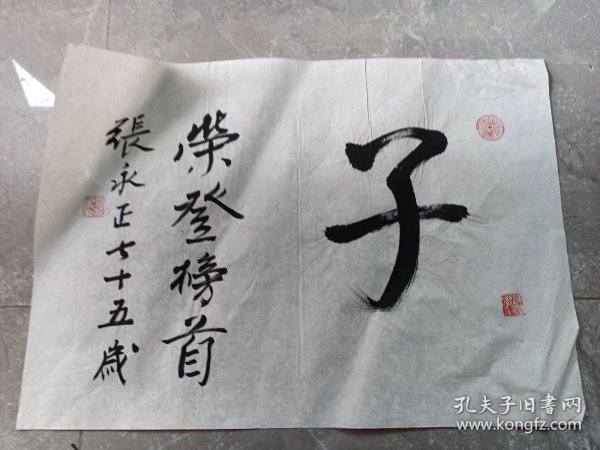 子
榮登榜首
張永正七十五歲
孔夫子旧書网
www.kongfz.com